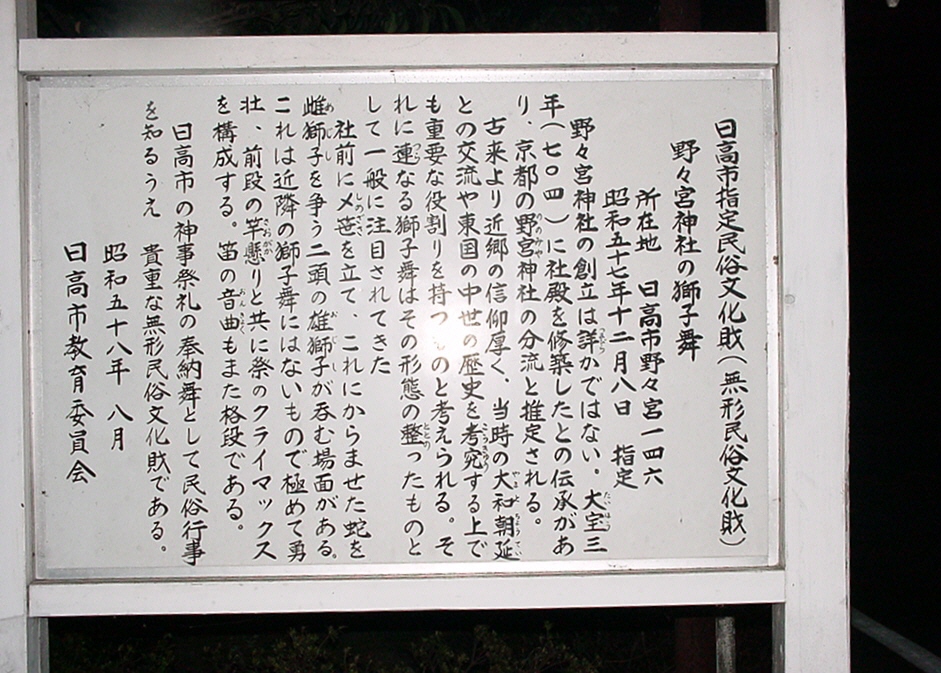 日高市指定民俗文化財(無形民俗文化財)
野々宮神社の獅子舞
所在地 日高市野々宮一四六
昭和五十七年十二月八日 指定
野々宮神社の創立は詳かではない。大宝三
年(七〇四)に社殿を修築したとの伝承があ
り、京都の野宮神社の分流と推定される。
古来より近郷の信仰厚く、当時の大和朝延
との交流や東国の中世の歴史を考究する上で
も重要な役割りを持つものと考えられる。そ
れに連なる獅子舞はその形態の整ったものと
して一般に注目されてきた
社前に〆笹を立て これにからませた蛇を
雌獅子を争う二頭の雄獅子が呑む場面がある。
これは近隣の獅子舞にはないもので極めて勇
壮、前段の竿懸りと共に祭のクライマックス
を構成する。笛の音曲もまた格段である。
日高市の神事祭礼の奉納舞として民俗行事
を知るうえ 貴重な無形民俗文化財である。
昭和五十八年 八月
日高市教育委員会